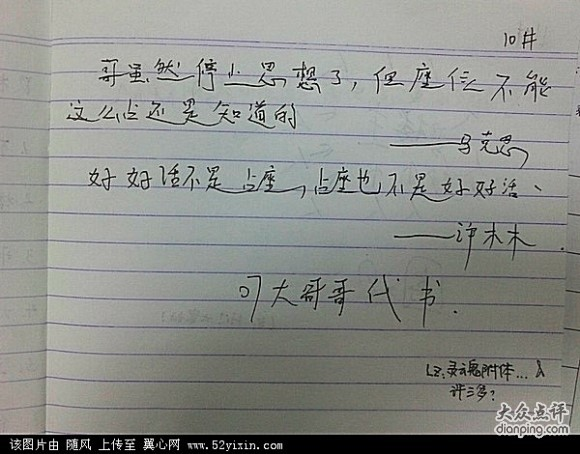 10井
哥虽然停止思想了，但座位不能
这么占还是知道的
——马克思
好好活不是占座，占座也不是好好活、
——许木木
叼大哥哥代书.
LZ:灵魂附体...&
许三多?
大众点评
dianping.com
该图片由 随风 上传至 翼心网 www.52yixin.com